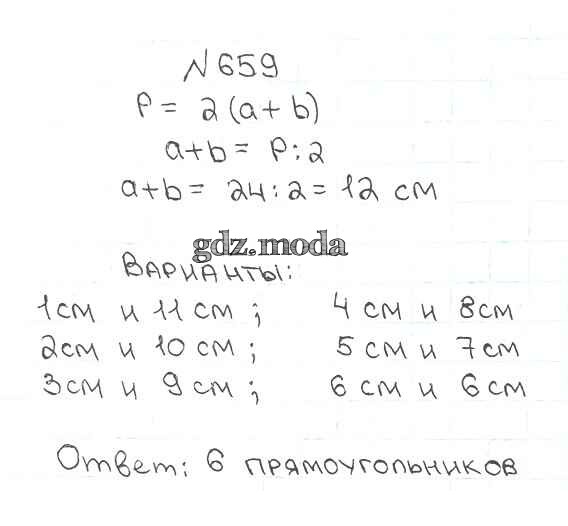 № 659
P = 2(a+b)
a+b = P:2
a+b = 24:2 = 12 см
gdz.moda
Варианты:
1см и 11 см; 4 см и 8см
2см и 10 см; 5 см и 7 см
3см и 9 см; 6 см и 6 см
Ответ: 6 прямоугольников